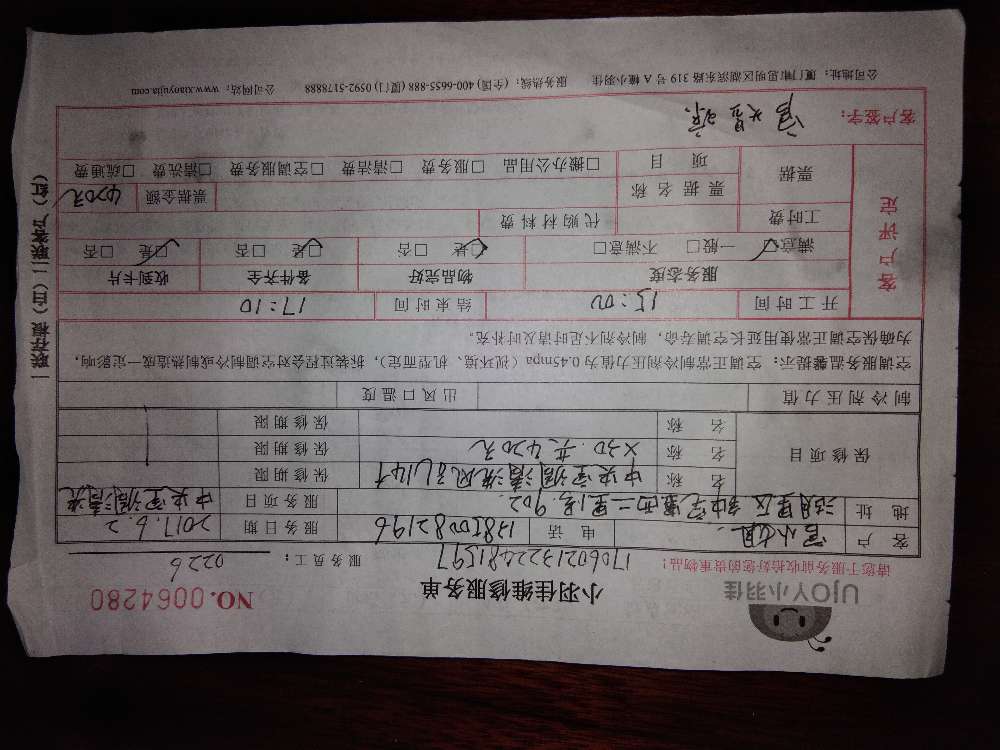 UJOY小羽佳
小羽佳维修服务单
NO.0064280
请您于服务前收拾好您的贵重物品!
1706021322481597
服务员工: 0226
客户 官小姐 电话 服务日期 2017.6.2
地址 902 服务项目 中央空调清洗
保修项目
名称 中央空调清洗风口14个 保修期限
名称 X30 共420元 保修期限
名称 保修期限
制冷剂压力值 出风口温度
空调服务温馨提示:空调正常制冷剂压力值为0.45mpa(视环境、机型而定),拆装过程会对空调制冷或制热造成一定影响,
为确保空调正常使用延长空调寿命,制冷剂不足时请及时补充。
开工时间 15:00 结束时间 17:10
客户评定
服务态度 物品完好 备件齐全 收到卡片
满意☑ 一般□ 不满意□ ☑是 □否 ☑是 □否 ☑是 □否
工时费 代购材料费
票据 票据名称 票据金额 420元
项目 □搬办公用品 □服务费 □清洁费 □空调服务费 □清洗费 □疏通费
客户签字:
公司地址:厦门市思明区湖滨东路319号A幢小羽佳 服务热线:(全国)400-6655-888 (厦门)0592-5178888 公司网站:www.xiaoyujia.com
一联存根(白)二联客户(红)